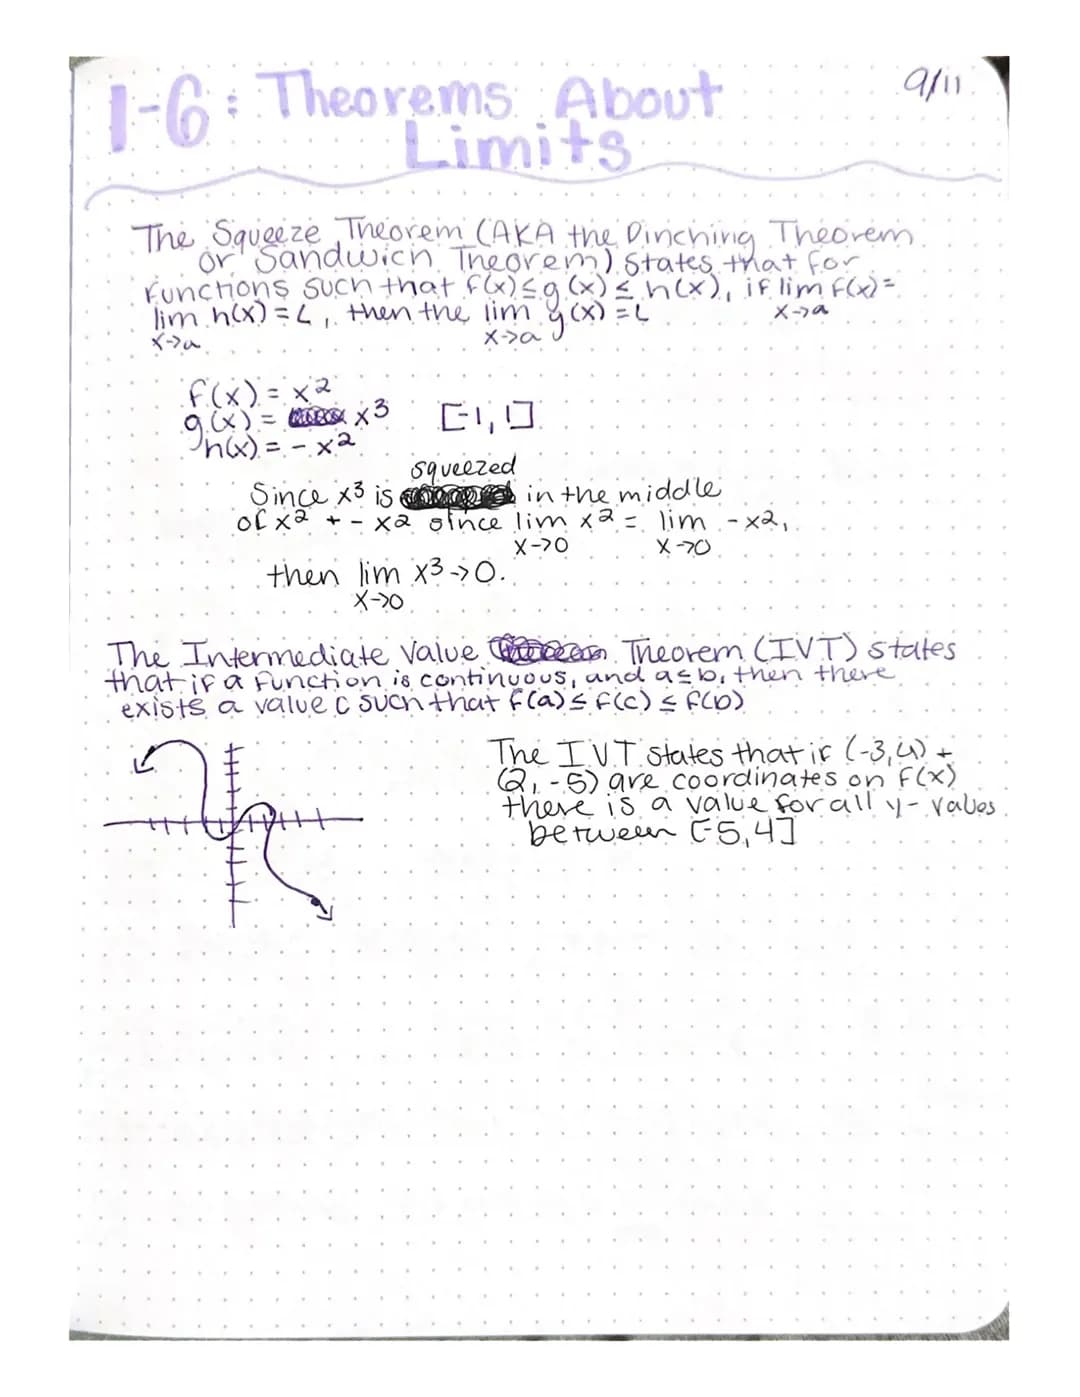 1-6: Theorems About
Limits
9/11
The Squeeze Theorem (AKA the Pinching Theorem
or Sandwich Theorem) states that for
functions such that f(x)≤g(x)≤h(x), if lim f(x)=
x->a
lim h(x)=L, then the lim g(x)=L
x->a x->a
f(x)=x²
g(x)= x³ [-1,1]
h(x)=-x²
squeezed
Since x³ is in the middle
of x² + -x² since lim x² = lim -x²,
x->0 x->0
then lim x³->0.
x->0
The Intermediate Value Theorem (IVT) states
that if a function is continuous, and a≤b, then there
exists a value c such that f(a)≤f(c)≤f(b)
The IVT states that if (-3,4) +
(2,-5) are coordinates on f(x)
there is a value for all y-values
between [-5,4]